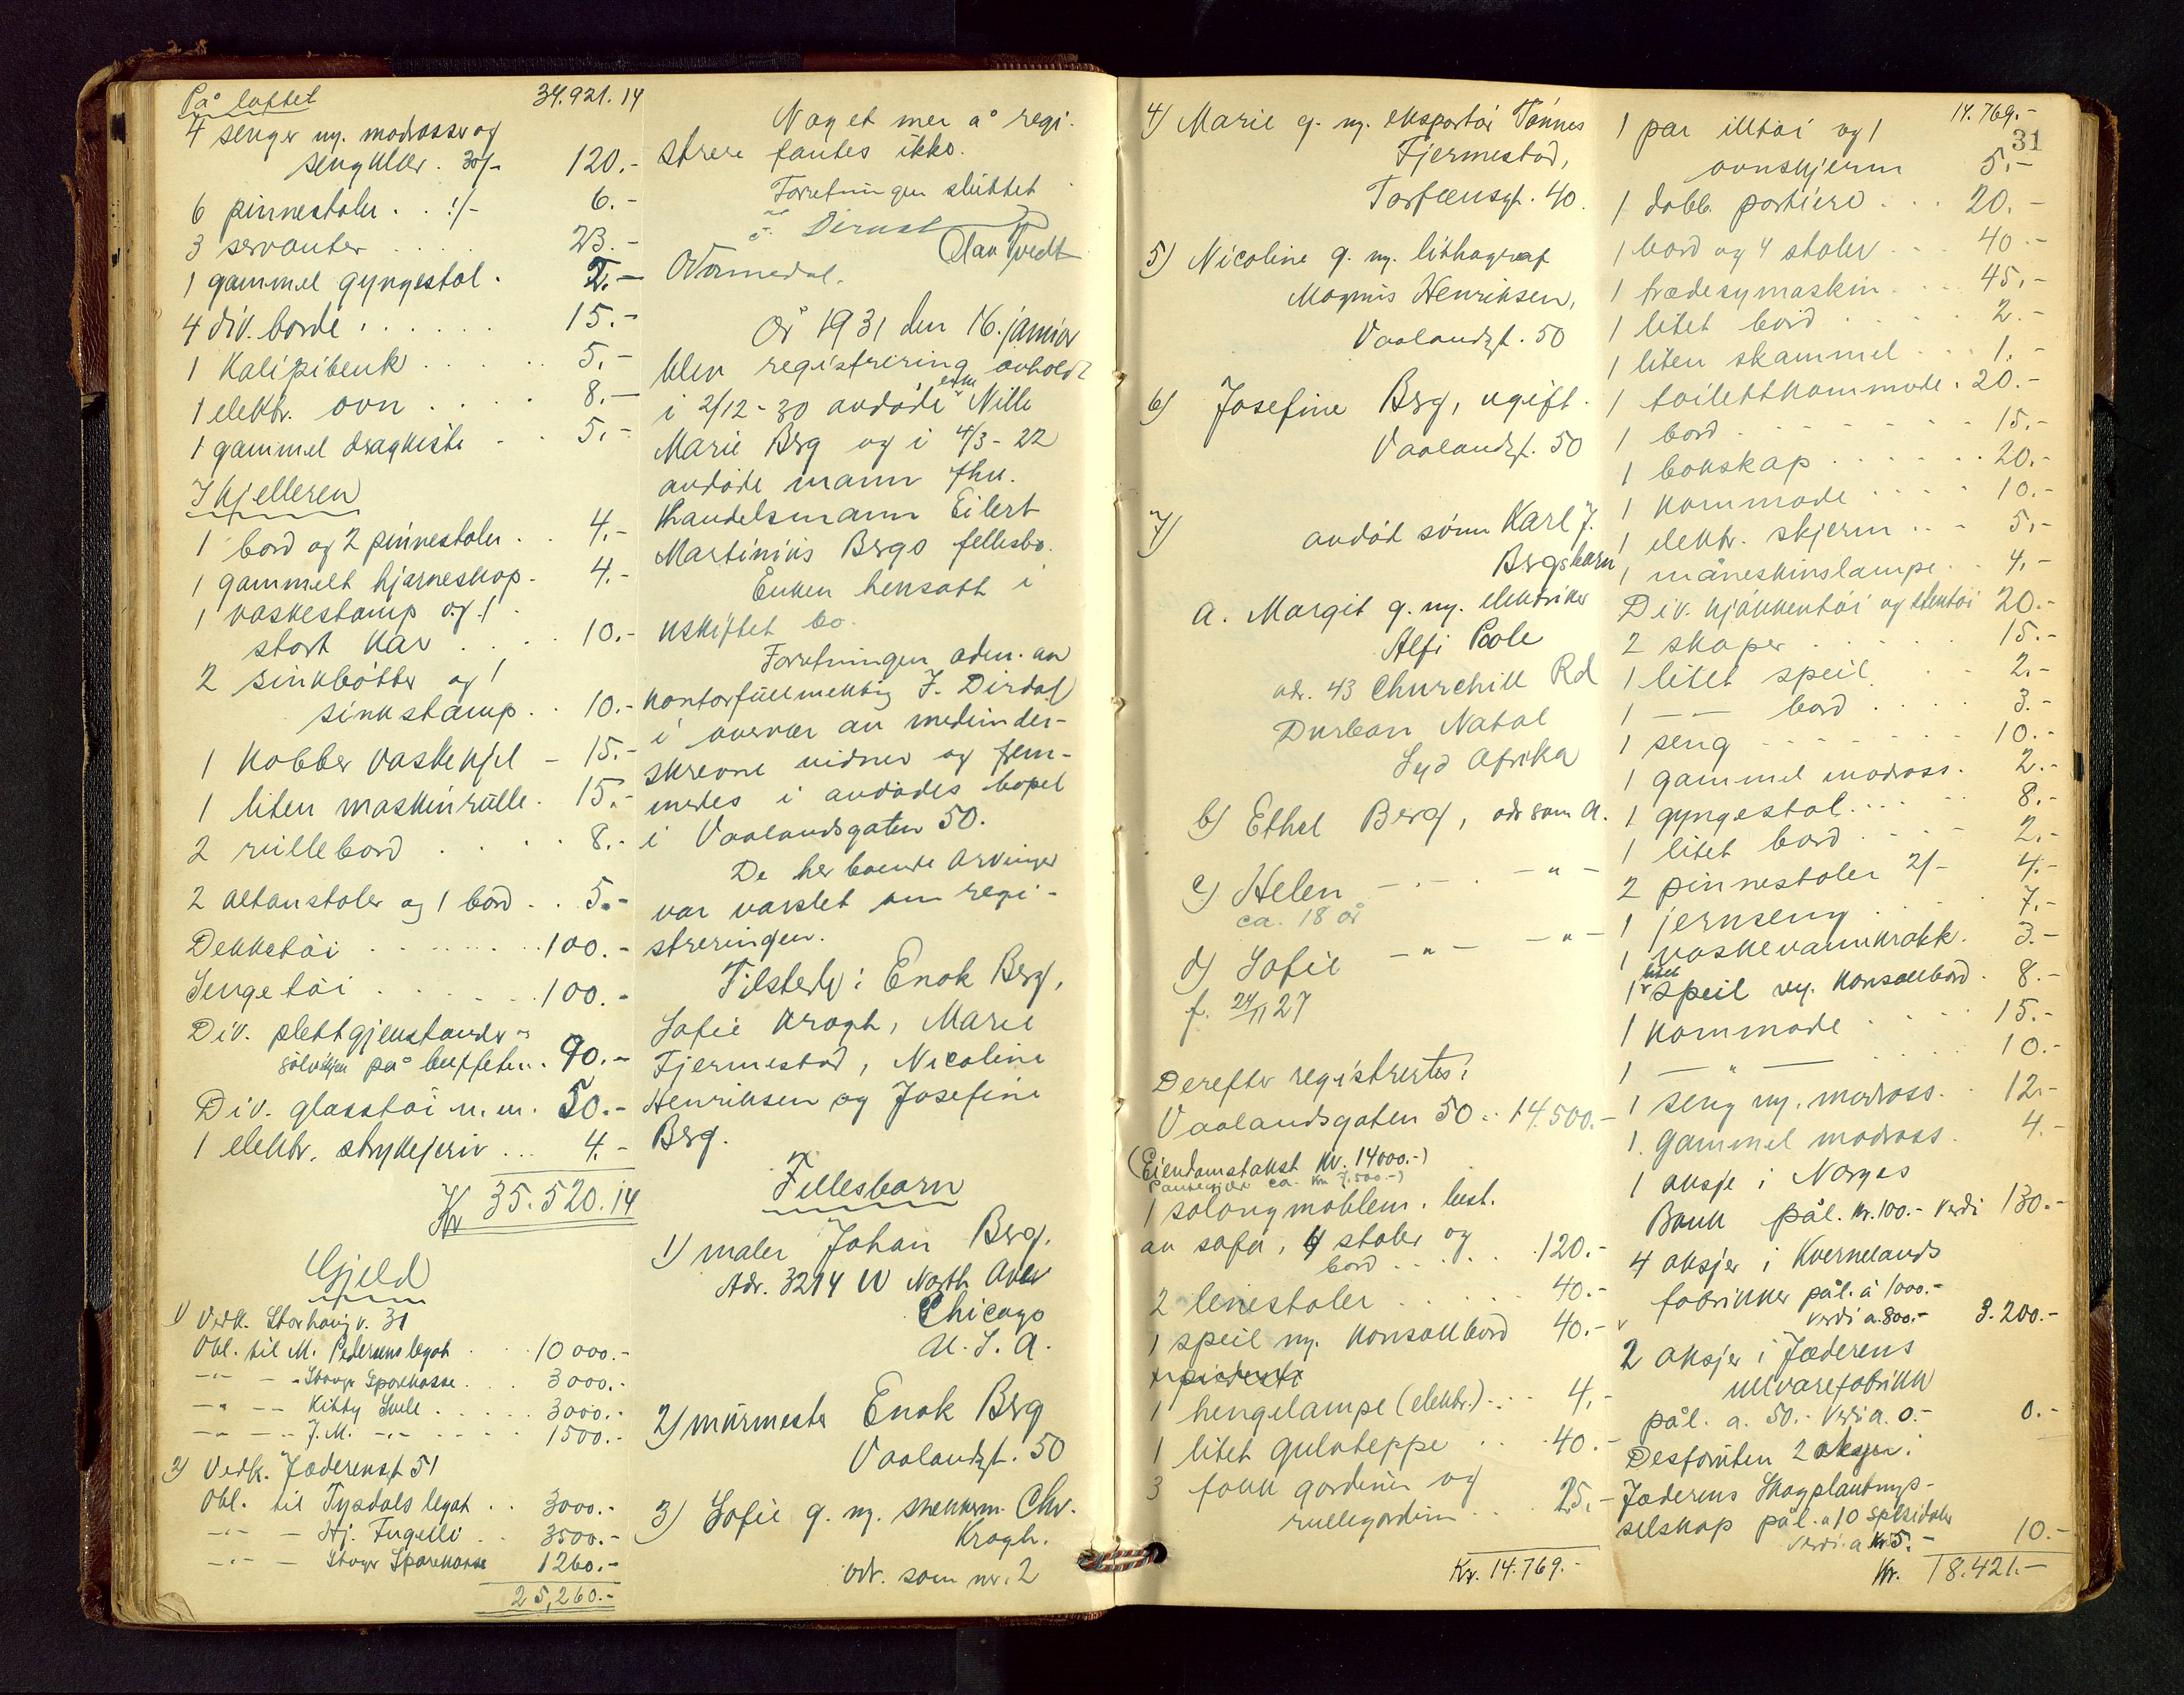 På loftet 34.921.14
4 senger m. madrasser og
sengklær. 30/- 120.-
6 pinnestoler . . 1/- 6.-
3 servanter . . . . 23.-
1 gammel gyngestol . 2.-
4 div. borde . . . . . . 15.-
1 Kalipibenk . . . . . 5.-
1 elektr. ovn . . . . 8.-
1 gammel dragkiste - . . 5.-
I kjelleren
1 bord og 2 pinnestoler . . 4.-
1 gammelt hjørneskap . 4.-
1 vaskestamp og 1
stort kar . . . . 10.-
2 sinkbøtter og 1
sinkstamp . . 10.-
1 Kobber vaskekjel - 15.-
1 liten maskinrulle . 15.-
2 rullebord . . . . . 8.-
2 altanstoler og 1 bord . . 5.-
Dekketøi . . . . . . . . 100.-
Sengetøi . . . . . . . 100.-
Div. plettgjenstander og
sølvskjeer på buffeten . . 90.-
Div. glasstøi m. m. 50.-
1 elektr. strykejern . . . 4.-
Kr 35.520.14
Gjeld
1) Vedk. Storhaug v. 31
Obl. til M. Pedersens legat . . 10 000.-
-"- - - Stavgr Sparekasse . . 3 000.-
-"- -- Kitty Svele . . . . . 3000.-
-"- - - J.M. -"- . . . . 1500.-
2) Vedk. Jæderensgt 51
Obl. til Tysdals legat . . 3000.-
-"- - Hj. Fugelli . . 3500.-
-"- - Stavgr Sparekasse 1260.-
25,260.-
Noget mer å regi-
strere fantes ikke.
Forretningen sluttet
Olav Tvedt
Å 1931 den 16. januar
blev registrering avholdt
i 2/12-30 avdøde enke Nille
Marie Berg og i 4/3-22
avdøde mann fhv.
Handelsmann Eilert
Martinius Bergs fellesbo.
Enken hensatt i
uskiftet bo.
Forretningen adm. av
kontorfullmektig J. Dirdal
i overvær av medunder-
skrevne vidner og frem-
medes i avdødes bopel
i Vaalandsgaten 50.
De her boende arvinger
var varslet om regi-
streringen.
Tilstede: Enok Berg,
Sofie Krogh, Marie
Fjermestad, Nicoline
Henriksen og Josefine
Berg.
Fellesbarn
1) maler Johan Berg.
Adr. 3214 W North Ave
Chicago
U. S. A.
2) murmester Enok Berg
Vaalandsgt. 50
3) Sofie g. m. snekkerm. Chr.
Krogh.
adr. som nr. 2
4) Marie g. m. eksportør Tønnes
Fjermestad,
Torfæusgt. 40.
5) Nicoline g. m. lithograf
Magnus Henriksen,
Vaalandsgt. 50
6) Josefine Berg, ugift.
Vaalandsgt. 50
7) avdød sønn Karl J.
Bergs barn
a. Margit g. m. elektriker
Alfi Poole
adr. 43 Churchill Rd
Durban Natal
Syd Afrika
b) Ethel Berg, adr som a.
c) Helen -.-. -"-
ca. 18 år
d) Sofie -"- -"-
f. 24/11 27
Derefter registrertes:
Vaalandsgaten 50 . . 14.500.-
(Eiendomstakst kr. 14000.-)
Pantegjeld ca. kr 7.500.-)
1 salongmøblem. best.
av sofa, 4 stoler og
bord . . . . 120.-
2 lenestoler . . . . . 40.-
1 speil m. konsollbord 40.-
1 piedestal
1 hengelampe (elektr.) . . . 4.-
1 litet gulvteppe . . . 40.-
3 fakk gardiner og
rullegardiner . . . 25.-
Kr. 14.769.-
14.769.-
31
1 par illtøi og 1
ovnskjerm 5.-
1 dobb. portiere . . . 20.-
1 bord og 4 stoler . . . 40.-
1 trædesymaskin . . . 45.-
1 litet bord . . . . . 2.-
1 liten skammel . . . 1.-
1 toilettkommode . 20.-
1 bord . . . . . . . 15.-
1 bokskap . . . . . . 20.-
1 kommode . . . . . 10.-
1 elektr. skjerm . . . 5.-
1 måneskinslampe . . 4.-
Div. kjøkkentøi og steintøi 20.-
2 skaper . . . . 15.-
1 litet speil . . . 2.-
1 -- bord . . . . . 3.-
1 seng . . . . . . . 10.-
1 gammel madrass . 2.-
1 gyngestol . . . . . 8.-
1 litet bord . . . . 2.-
2 pinnestoler 2/- 4.-
1 jernseng . . . . 7.-
1 vaskevannkrakk . 3.-
1 litet speil m. konsollbord . 8.-
1 kommode . . . . . 15.-
1 -"- . . . . . 10.-
1 seng m. madrass . . 12.-
1 gammel madrass . 4.-
1 aksje i Norges
Bank pål. kr.100.- verdi 130.-
4 aksjer i Kvernelands
fabrikker pål. à 1000.-
verdi a. 800.- 3.200.-
2 aksjer i Jæderens
uldvarefabrikk
pål. a. 50.- verdi a. 0.- 0.-
Desforuten 2 aksjer i
Jæderens Skogplantnings-
selskap pål. a 10 Spesidaler
verdi a kr 5.- 10.-
Kr. 18.421.-